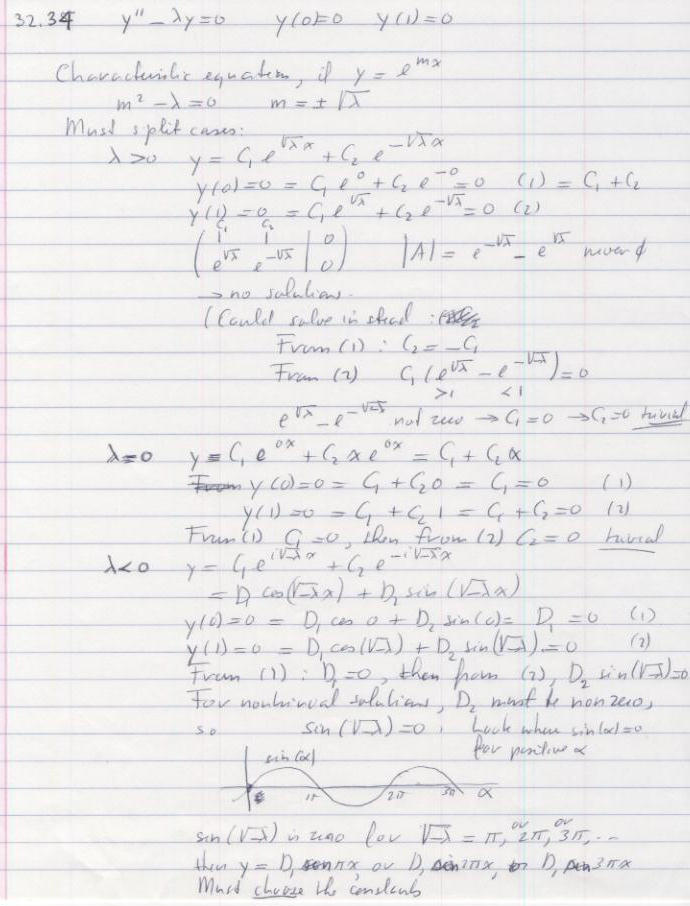 32.34 y'' - λy = 0 y(0)=0 y(1)=0
Characteristic equation, if y = e^{mx}
m² - λ = 0 m = ± √λ
Must split cases:
λ>0 y = C₁ e^{√λ x} + C₂ e^{-√λ x}
y(0)=0 = C₁ e^0 + C₂ e^{-0} = 0 (1) = C₁ + C₂
y(1)=0 = C₁ e^{√λ} + C₂ e^{-√λ} = 0 (2)
C₁ C₂
( 1 1 | 0
e^{√λ} e^{-√λ} | 0 ) |A| = e^{-√λ} - e^{√λ} never 0
→ no solutions.
(Could solve instead:
From (1) : C₂ = -C₁
From (2) C₁ (e^{√λ} - e^{-√λ}) = 0
>1 <1
e^{√λ} - e^{-√λ} not zero → C₁ = 0 → C₂ = 0 trivial
λ=0 y = C₁ e^{0x} + C₂ x e^{0x} = C₁ + C₂ x
From y(0)=0 = C₁ + C₂ 0 = C₁ = 0 (1)
y(1)=0 = C₁ + C₂ 1 = C₁ + C₂ = 0 (2)
From (1) C₁ = 0, then from (2) C₂ = 0 trivial
λ<0 y = C₁ e^{i√-λ x} + C₂ e^{-i√-λ x}
= D₁ cos(√-λ x) + D₂ sin(√-λ x)
y(0)=0 = D₁ cos 0 + D₂ sin(0) = D₁ = 0 (1)
y(1)=0 = D₁ cos(√-λ) + D₂ sin(√-λ) = 0 (2)
From (1) : D₁ = 0, then from (2), D₂ sin(√-λ)=0
For nontrivial solutions, D₂ must be nonzero,
so sin(√-λ) = 0, Look where sin(α)=0
for positive α
sin(α)
π 2π 3π α
or or
sin(√-λ) is zero for √-λ = π, 2π, 3π, ...
then y = D₁ sin πx, or D₁ sin 2πx, or D₁ sin 3πx
Must choose the constants